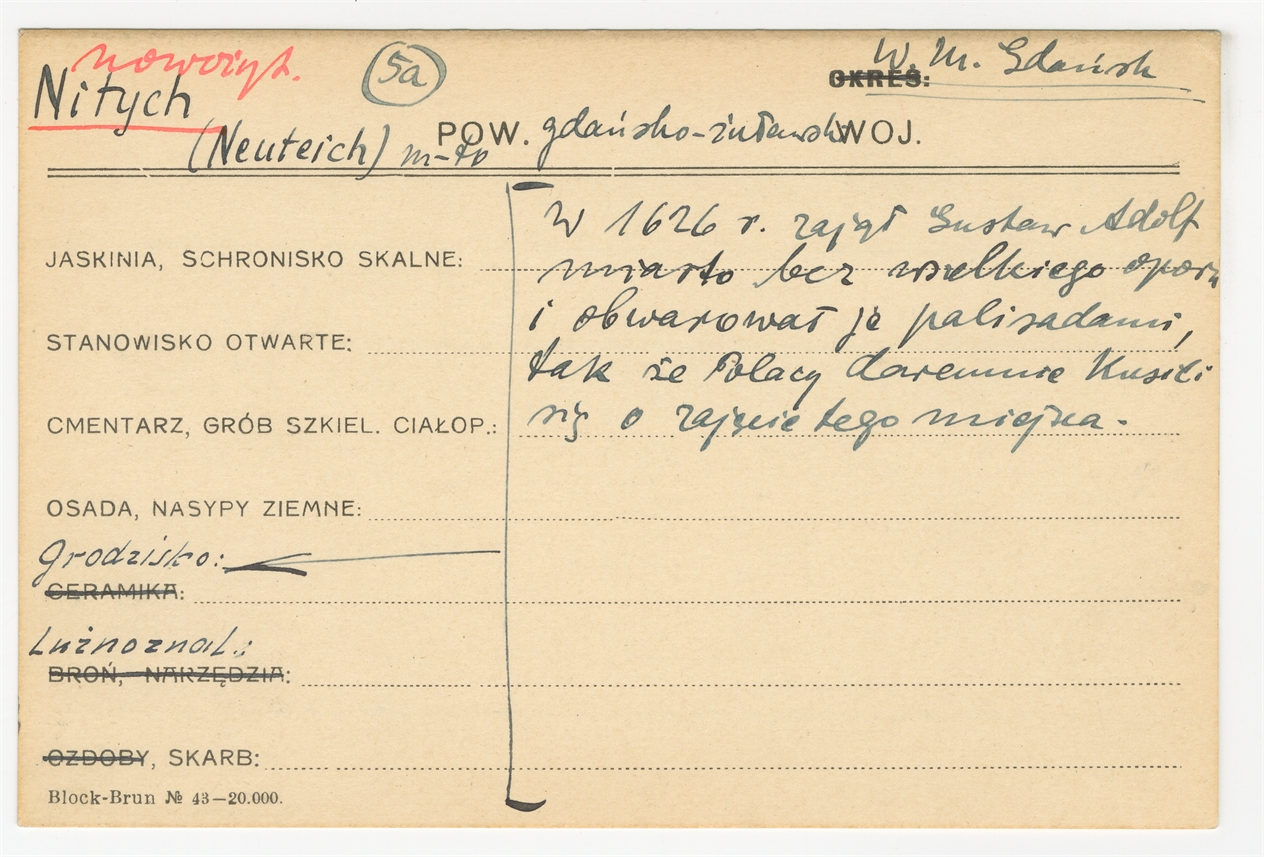 nowożyt.
5a
W. M. Gdańsk
Nitych
OKRES:
(Neuteich) m-to
POW. gdańsko-żuławski WOJ.
W 1626 r. zajął Gustaw Adolf
JASKINIA, SCHRONISKO SKALNE:
miasto bez wszelkiego oporu
i obwarował je palisadami,
STANOWISKO OTWARTE:
tak że Polacy daremnie kusili
CMENTARZ, GRÓB SZKIEL. CIAŁOP.:
się o zajęcie tego miejsca.
OSADA, NASYPY ZIEMNE:
Grodzisko:
CERAMIKA:
Luźno znal.:
BROŃ, NARZĘDZIA:
OZDOBY, SKARB:
Block-Brun № 43—20.000.